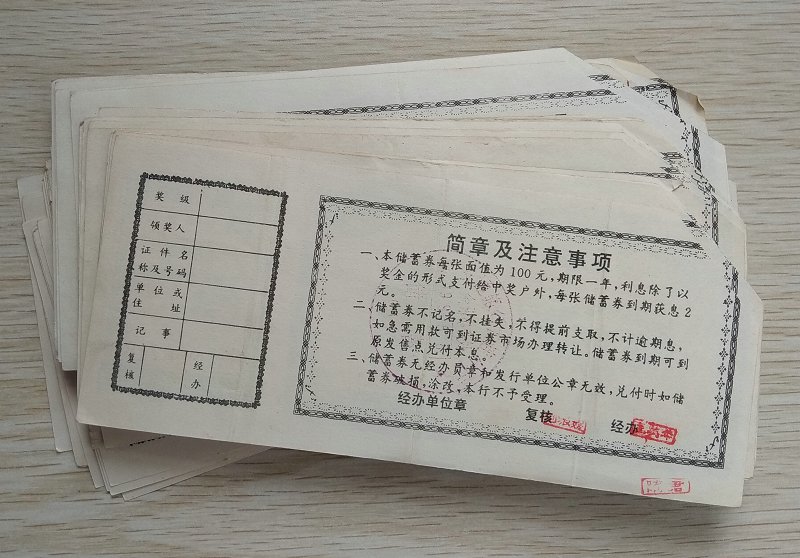 奖级
领奖人
证件名
称及号码
单位或
住址
记事
复核
经办
简章及注意事项
一、本储蓄券每张面值为100元，期限一年，利息除了以
奖金的形式支付给中奖户外，每张储蓄券到期获息2
元。
二、储蓄券不记名，不挂失，不得提前支取，不计逾期息，
如急需用款可到证券市场办理转让。储蓄券到期可到
原发售点兑付本息。
三、储蓄券无经办员章和发行单位公章无效，兑付时如储
蓄券破损，涂改，本行不予受理。
经办单位章 复核 经办